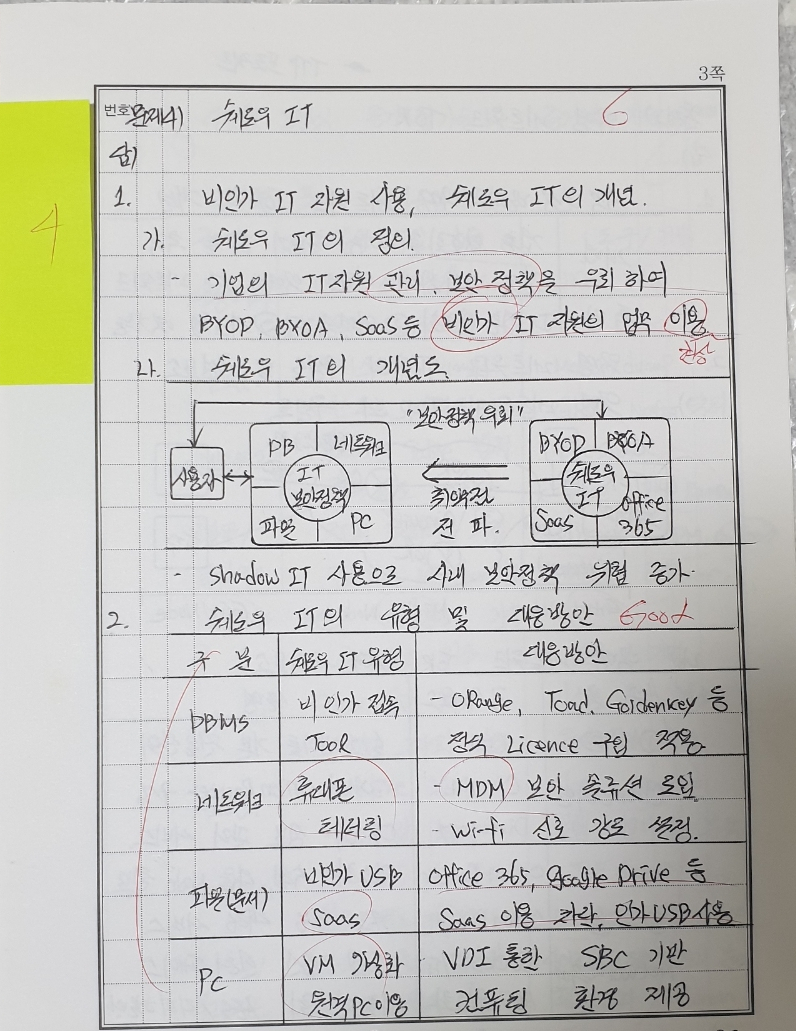 3쪽
번호 문제4) 쉐도우 IT 6
답)
4
1. 비인가 IT 자원 사용, 쉐도우 IT의 개념.
가. 쉐도우 IT의 정의.
- 기업의 IT자원 관리, 보안 정책을 우회 하여
BYOD, BYOA, SaaS 등 비인가 IT 자원의 업무 이용
현상
나. 쉐도우 IT의 개념도.
"보안정책 우회"
사용자 DB 네트워크 파일 PC IT 보안정책
취약점 전파.
BYOD BYOA SaaS Office 365 쉐도우 IT
- Shadow IT 사용으로 사내 보안정책 위협 증가.
2. 쉐도우 IT의 유형 및 대응방안 Good
구분 쉐도우 IT 유형 대응방안
DBMS 비인가 접속 - ORange, Toad, Goldenkey 등
TooR 정식 Licence 구입 적용.
네트워크 휴대폰 - MDM 보안 솔류션 도입
테더링 - Wi-fi 신호 강도 설정.
파일(문서) 비인가 USB Office 365, Google Drive 등
SaaS SaaS 이용 차단, 인가 USB 사용
PC VM 가상화 VDI 통한 SBC 기반
원격PC이용 컴퓨팅 환경 제공